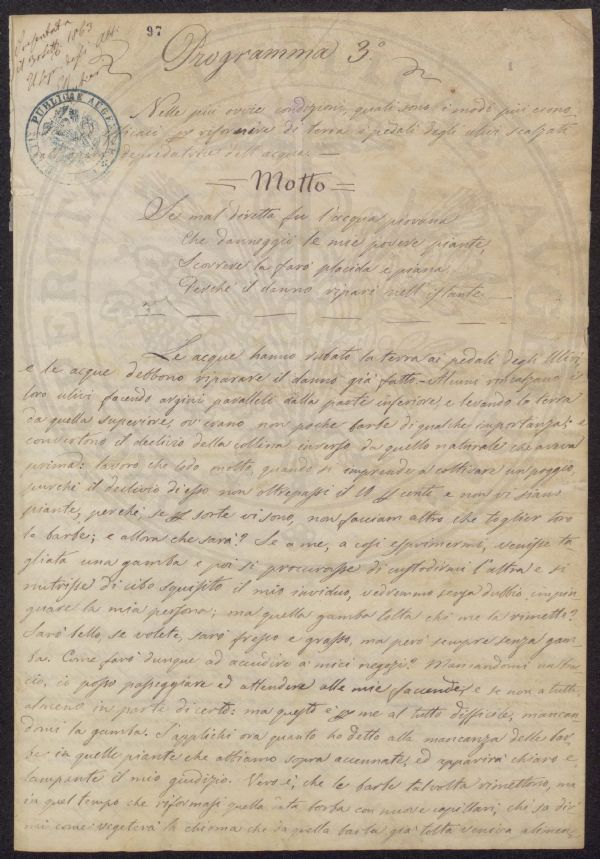 Presentata
il 1863
97
Programma 3.º
Nelle più ovvie condizioni, quali sono i modi più econo-
mici per rifornire di terra i pedali degli ulivi scalzati
depredatrice dell'acque. —
= Motto =
Se mal diretta fu l'acqua piovana
Che danneggiò le mie povere piante,
Scorrere la farò placida e piana
Perchè il danno ripari nell'istante.
Le acque hanno rubato la terra ai pedali degli Ulivi
e le acque debbono riparare il danno già fatto. - Alcuni rincalzano i
loro ulivi facendo argini paralleli dalla parte inferiore, e levando la terra
da quella superiore, ove sono non poche barbe di qualche importanza; e
convertono il declivio della collina inverso da quello naturale che aveva
prima: lavoro che lodo molto, quando si imprende a coltivare un poggio,
purchè il declivio di esso non oltrepassi il 10 p cento, e non vi siano
piante, perchè se p sorte vi sono, non facciam altro che toglier loro
le barbe; e allora che sarà? Se a me, a così esprimermi, venisse ta-
gliata una gamba e poi si procurasse di custodirmi l'altra e si
nutrisse di cibo squisito il mio individuo, vedremmo senza dubbio, impin-
guare la mia persona; ma quella gamba tolta chi me la rimette?
Sarò bello, se volete, sarò fresco e grasso, ma però sempre senza gam-
ba. Come farò dunque ad accudire a' miei negozi? Mancandomi un brac-
cio, io posso passeggiare ed attendere alle mie faccende, e se non a tutte,
almeno in parte di certo: ma questo è p me al tutto difficile, mancan-
domi la gamba. S'applichi ora quanto ho detto alla mancanza delle bar-
be in quelle piante che abbiamo sopra accennate, ed apparirà chiaro e
lampante il mio giudizio. Vero è, che le barbe talvolta rimettono, ma
in quel tempo che riformasi quella data barba con nuovi capillari, chi sa dir-
mi come vegeterà la chioma che da quella barba già tolta veniva alimen-